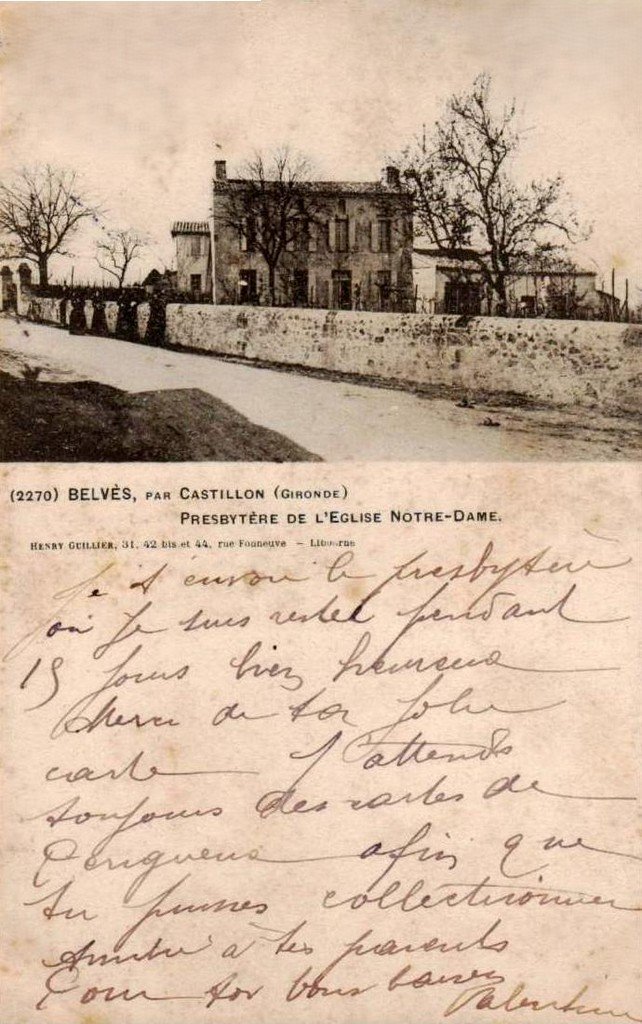 (2270) BELVÈS, PAR CASTILLON (GIRONDE)
PRESBYTÈRE DE L'EGLISE NOTRE-DAME.
HENRY GUILLIER, 31, 42 bis et 44, rue Fonneuve – Libourne
Je t'envoie le presbytère
où je suis resté pendant
15 jours bien heureux
Merci de ta jolie
carte J'attends
toujours des cartes de
Perigueux afin que
tu puisses collectionner
Amitié à tes parents
Pour toi bons baisers
Valentine